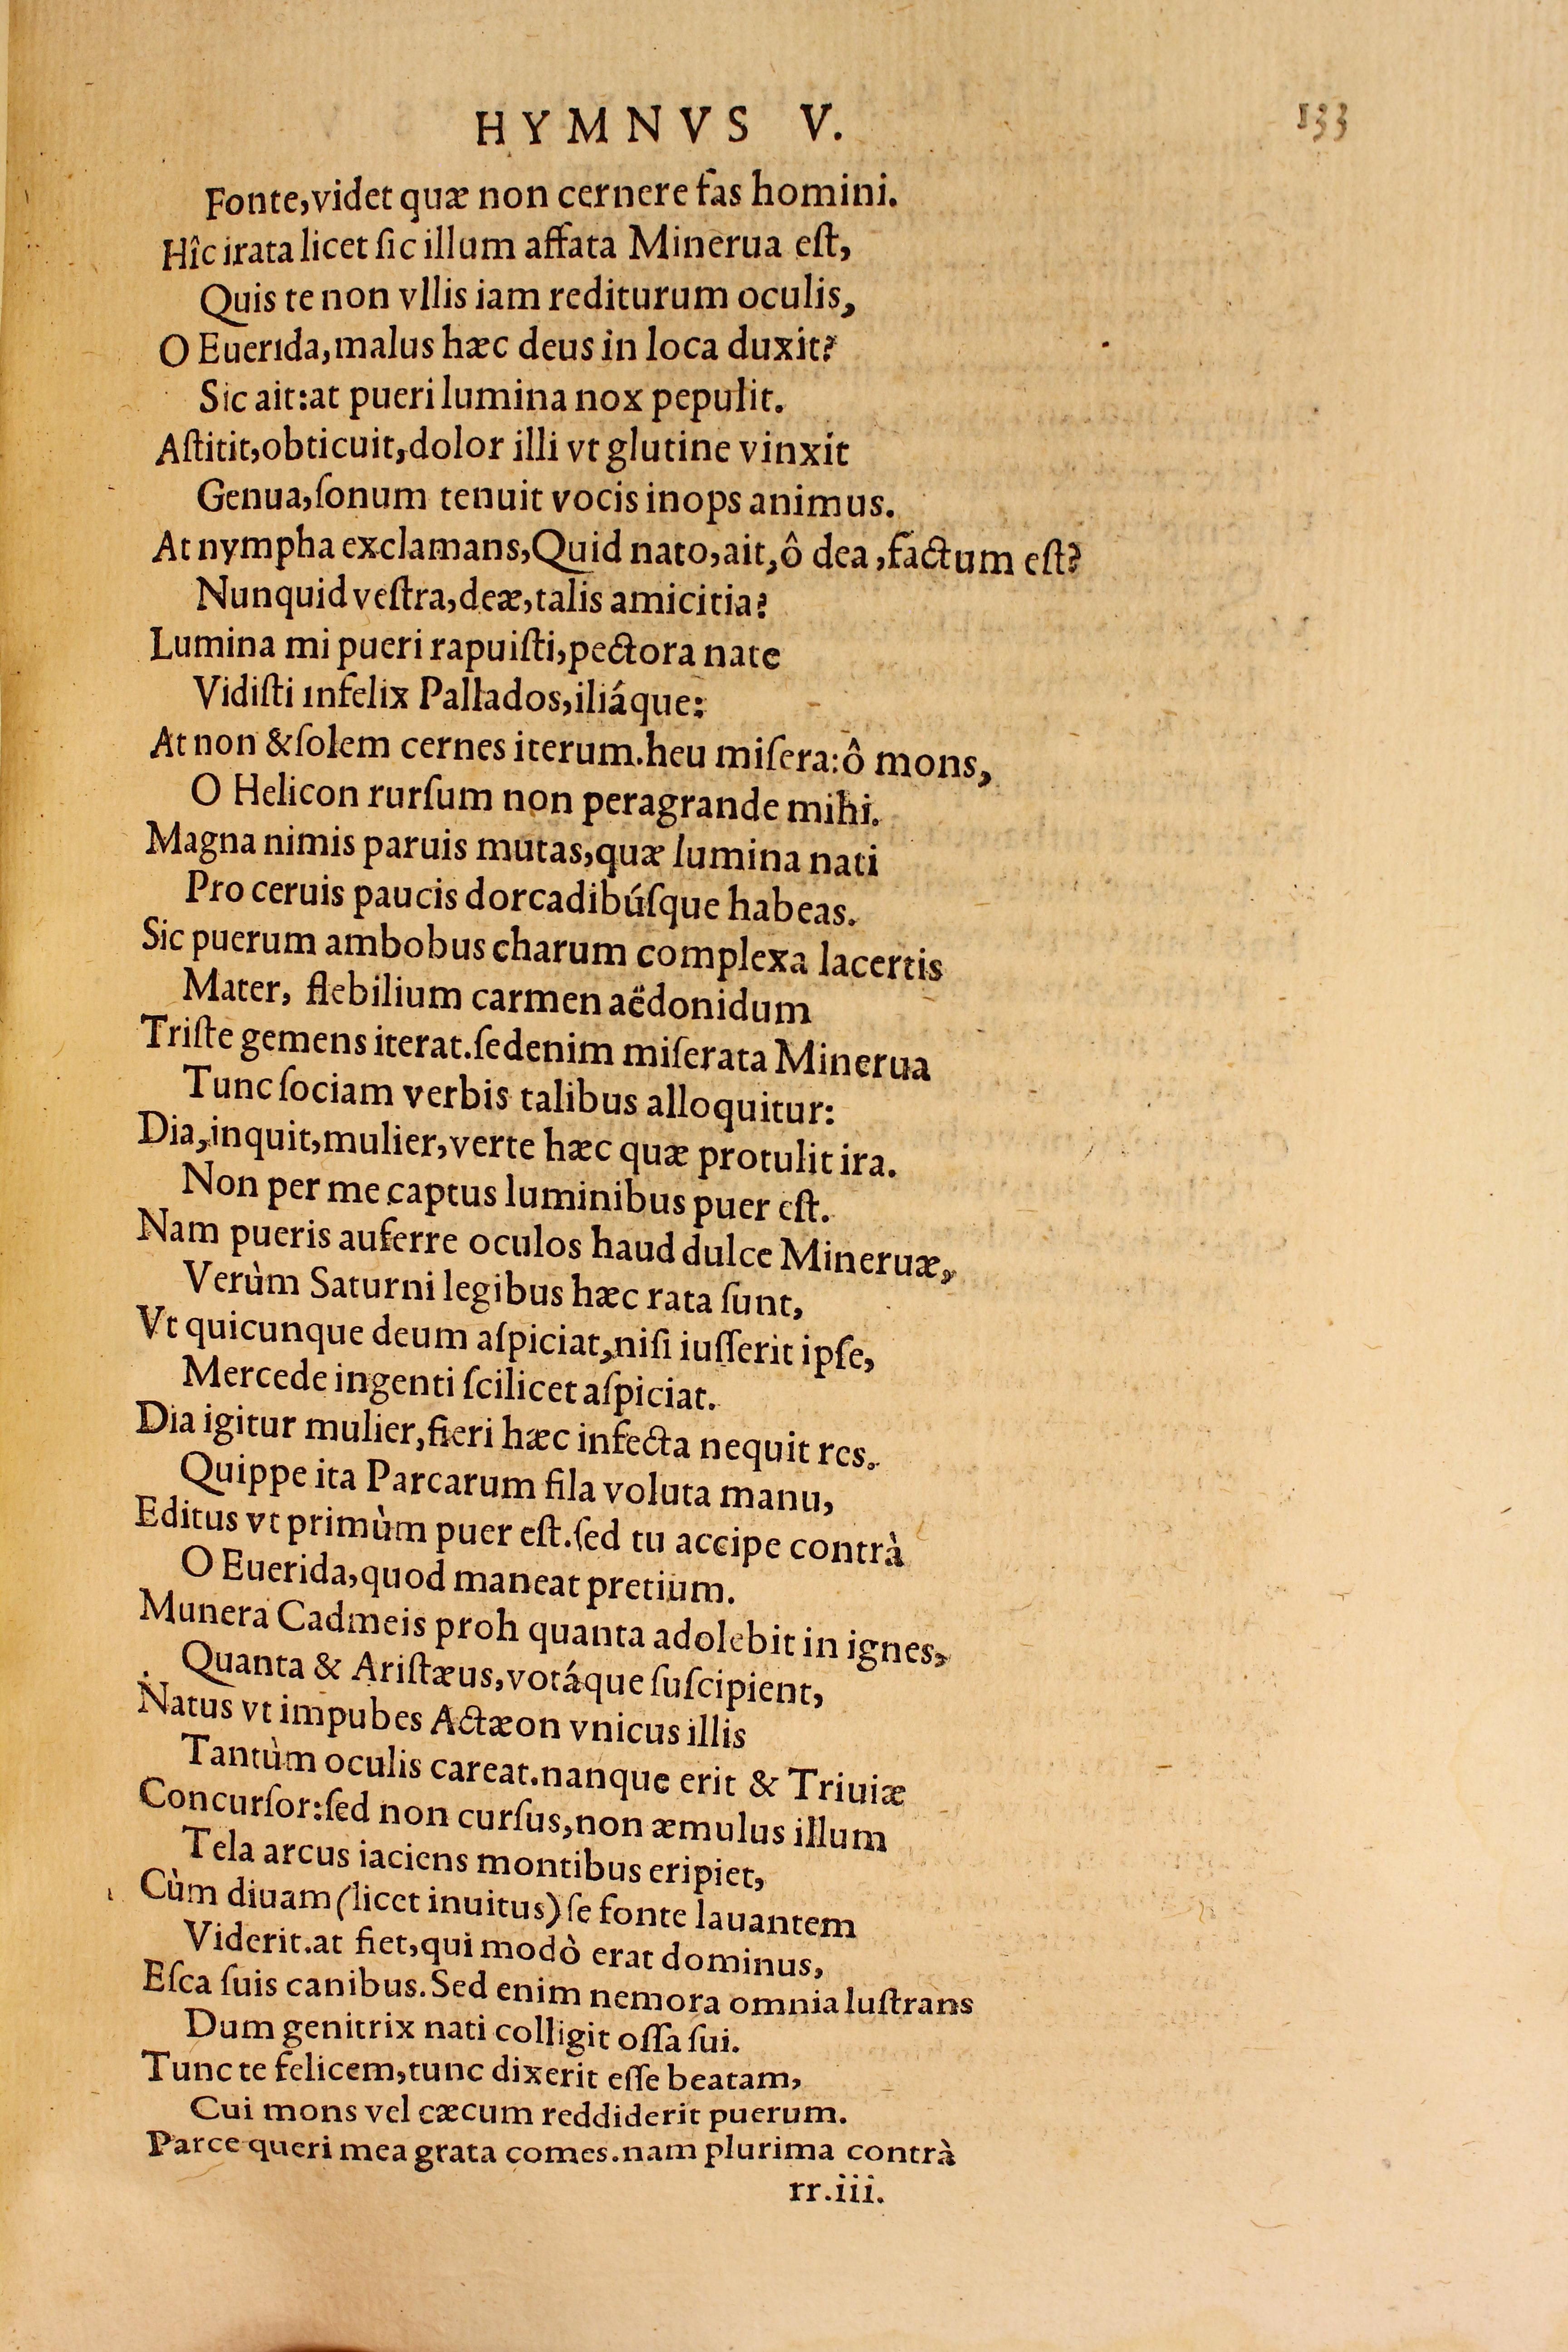 HYMNVS V. 133
Fonte, videt quæ non cernere fas homini.
Hîc irata licet ſic illum affata Minerua eſt,
Quis te non vllis iam rediturum oculis,
O Euerida, malus hæc deus in loca duxit?
Sic ait: at pueri lumina nox pepulit.
Aſtitit, obticuit, dolor illi vt glutine vinxit
Genua, ſonum tenuit vocis inops animus.
At nympha exclamans, Quid nato, ait, ô dea, factum eſt?
Nunquid veſtra, deæ, talis amicitia?
Lumina mi pueri rapuiſti, pectora nate
Vidiſti infelix Pallados, iliáque:
At non & ſolem cernes iterum. heu miſera: ô mons,
O Helicon rurſum non peragrande mihi.
Magna nimis paruis mutas, quæ lumina nati
Pro ceruis paucis dorcadibúſque habeas.
Sic puerum ambobus charum complexa lacertis
Mater, flebilium carmen aëdonidum
Triſte gemens iterat. ſedenim miſerata Minerua
Tunc ſociam verbis talibus alloquitur:
Dia, inquit, mulier, verte hæc quæ protulit ira.
Non per me captus luminibus puer eſt.
Nam pueris auferre oculos haud dulce Mineruæ,
Verùm Saturni legibus hæc rata ſunt,
Vt quicunque deum aſpiciat, niſi iuſſerit ipſe,
Mercede ingenti ſcilicet aſpiciat.
Dia igitur mulier, fieri hæc infecta nequit res.
Quippe ita Parcarum fila voluta manu,
Editus vt primùm puer eſt. ſed tu accipe contrà
O Euerida, quod maneat pretium.
Munera Cadmeis proh quanta adolebit in ignes,
Quanta & Ariſtæus, votáque ſuſcipient,
Natus vt impubes Actæon vnicus illis
Tantùm oculis careat. nanque erit & Triuiæ
Concurſor: ſed non curſus, non æmulus illum
Tela arcus iaciens montibus eripiet,
Cùm diuam (licet inuitus) ſe fonte lauantem
Viderit. at fiet, qui modò erat dominus,
Eſca ſuis canibus. Sed enim nemora omnia luſtrans
Dum genitrix nati colligit oſſa ſui.
Tunc te felicem, tunc dixerit eſſe beatam,
Cui mons vel cæcum reddiderit puerum.
Parce queri mea grata comes. nam plurima contrà
rr.iii.